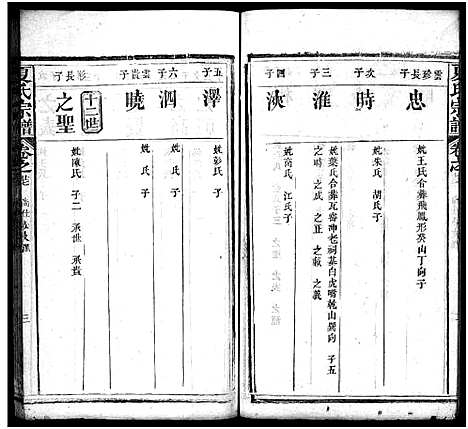 雲珍長子
忠
妣王氏合葬飛鳳形癸山丁向子
次子
時
妣朱氏 胡氏子
三子
淮
妣葉氏合葬瓦窑冲老祠基白虎嘴乾山巽向 子五
之成 之正 之敏 之義
四子
浹
妣南氏 江氏子
五子
澤
妣彭氏 子
六子
泗
妣 氏 子
雲貴子
曉
妣 氏 子
十二世
彩長子
之聖
妣陳氏 子二 承世 承貴
夏氏宗譜
卷之
三